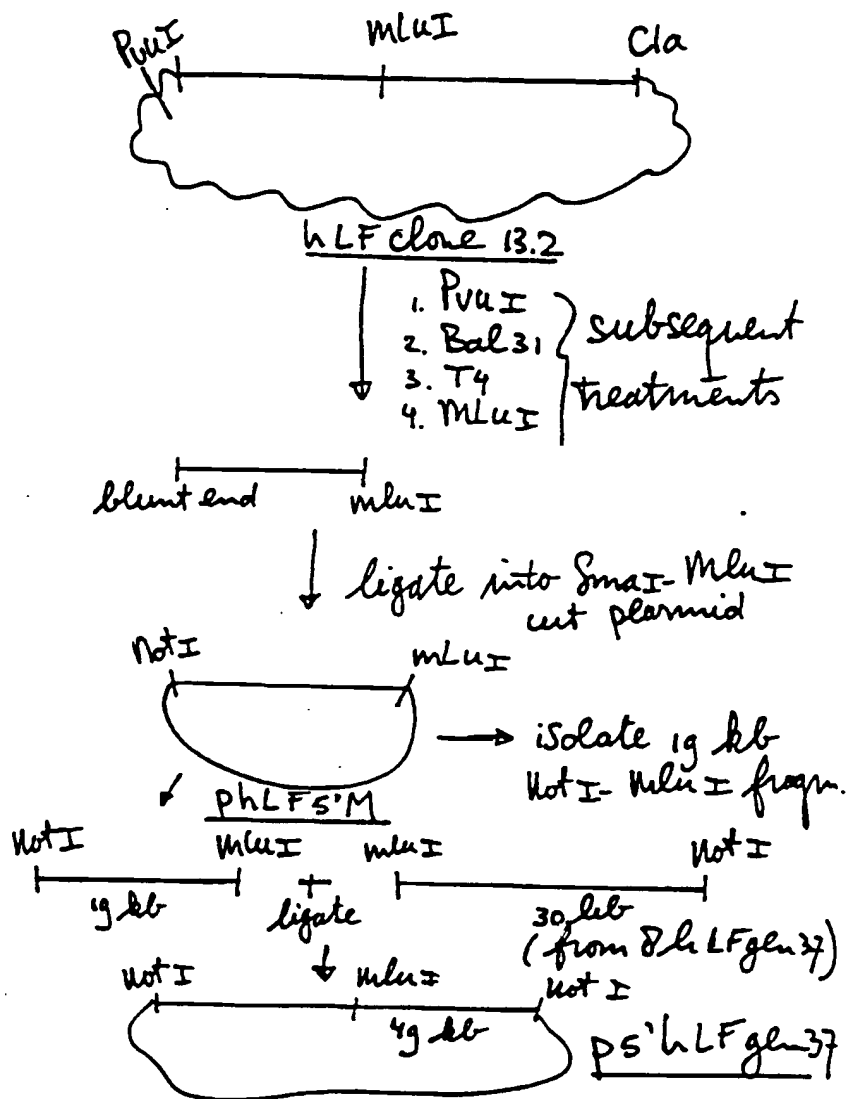 PvuI
mLuI
Cla
hLF clone 13.2
1. PvuI
2. Bal31
3. T4
4. MLuI
subsequent
treatments
blunt end
mluI
ligate into SmaI-MluI
cut plasmid
NotI
mLuI
isolate 19 kb
NotI-MluI fragm.
phLF5'M
NotI
MluI
mluI
NotI
19 kb
+
ligate
30 kb
(from 8hLFgen37)
NotI
mluI
Not I
49 kb
p5'hLFgen37